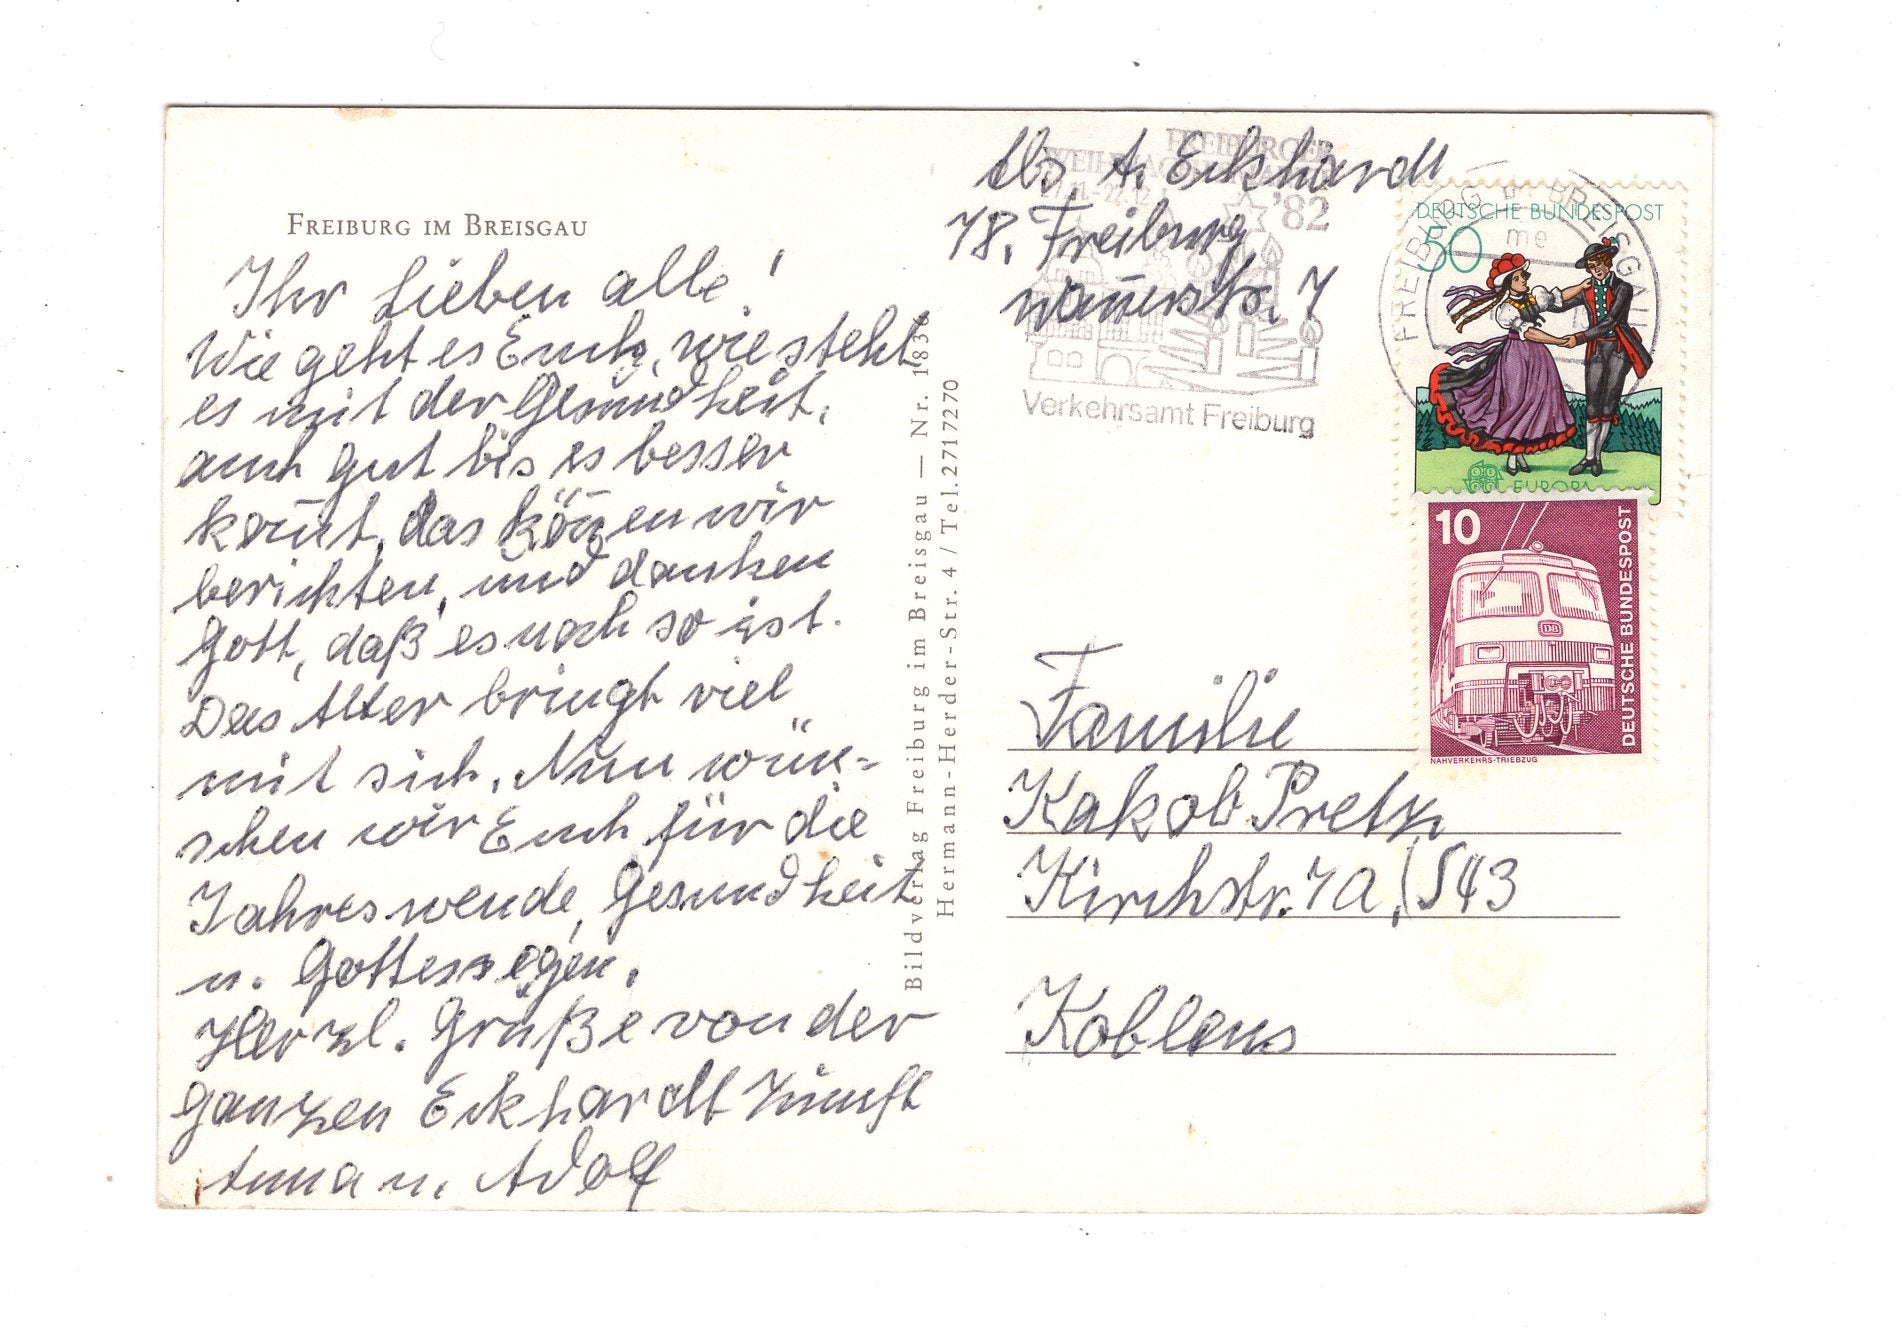 FREIBURG IM BREISGAU
Ihr Lieben alle!
Wie geht es Euch, wie steht
es mit der Gesundheit,
auch gut bis es besser
kom̄t, das kön̄en wir
berichten, und danken
Gott, daß es noch so ist.
Das Alter bringt viel
mit sich. Nun wün-
schen wir Euch für die
Jahreswende, Gesundheit
u. Gottessegen.
Herzl. Grüße von der
ganzen Eckhardt Zunft
Anna u. Adolf
Bildverlag Freiburg im Breisgau — Nr. 183
Hermann-Herder-Str. 4 / Tel. 2717270
Abs. A. Eckhardt
78. Freiburg
7
FREIBURGER
WEIHNACHTSMARKT
'82
Verkehrsamt Freiburg
FREIBURG BREISGAU
me
DEUTSCHE BUNDESPOST
50
EUROPA
10
DB
DEUTSCHE BUNDESPOST
NAHVERKEHRS-TRIEBZUG
Familie
Kakob Pretz
Kirchstr. 7a, (543
Koblens